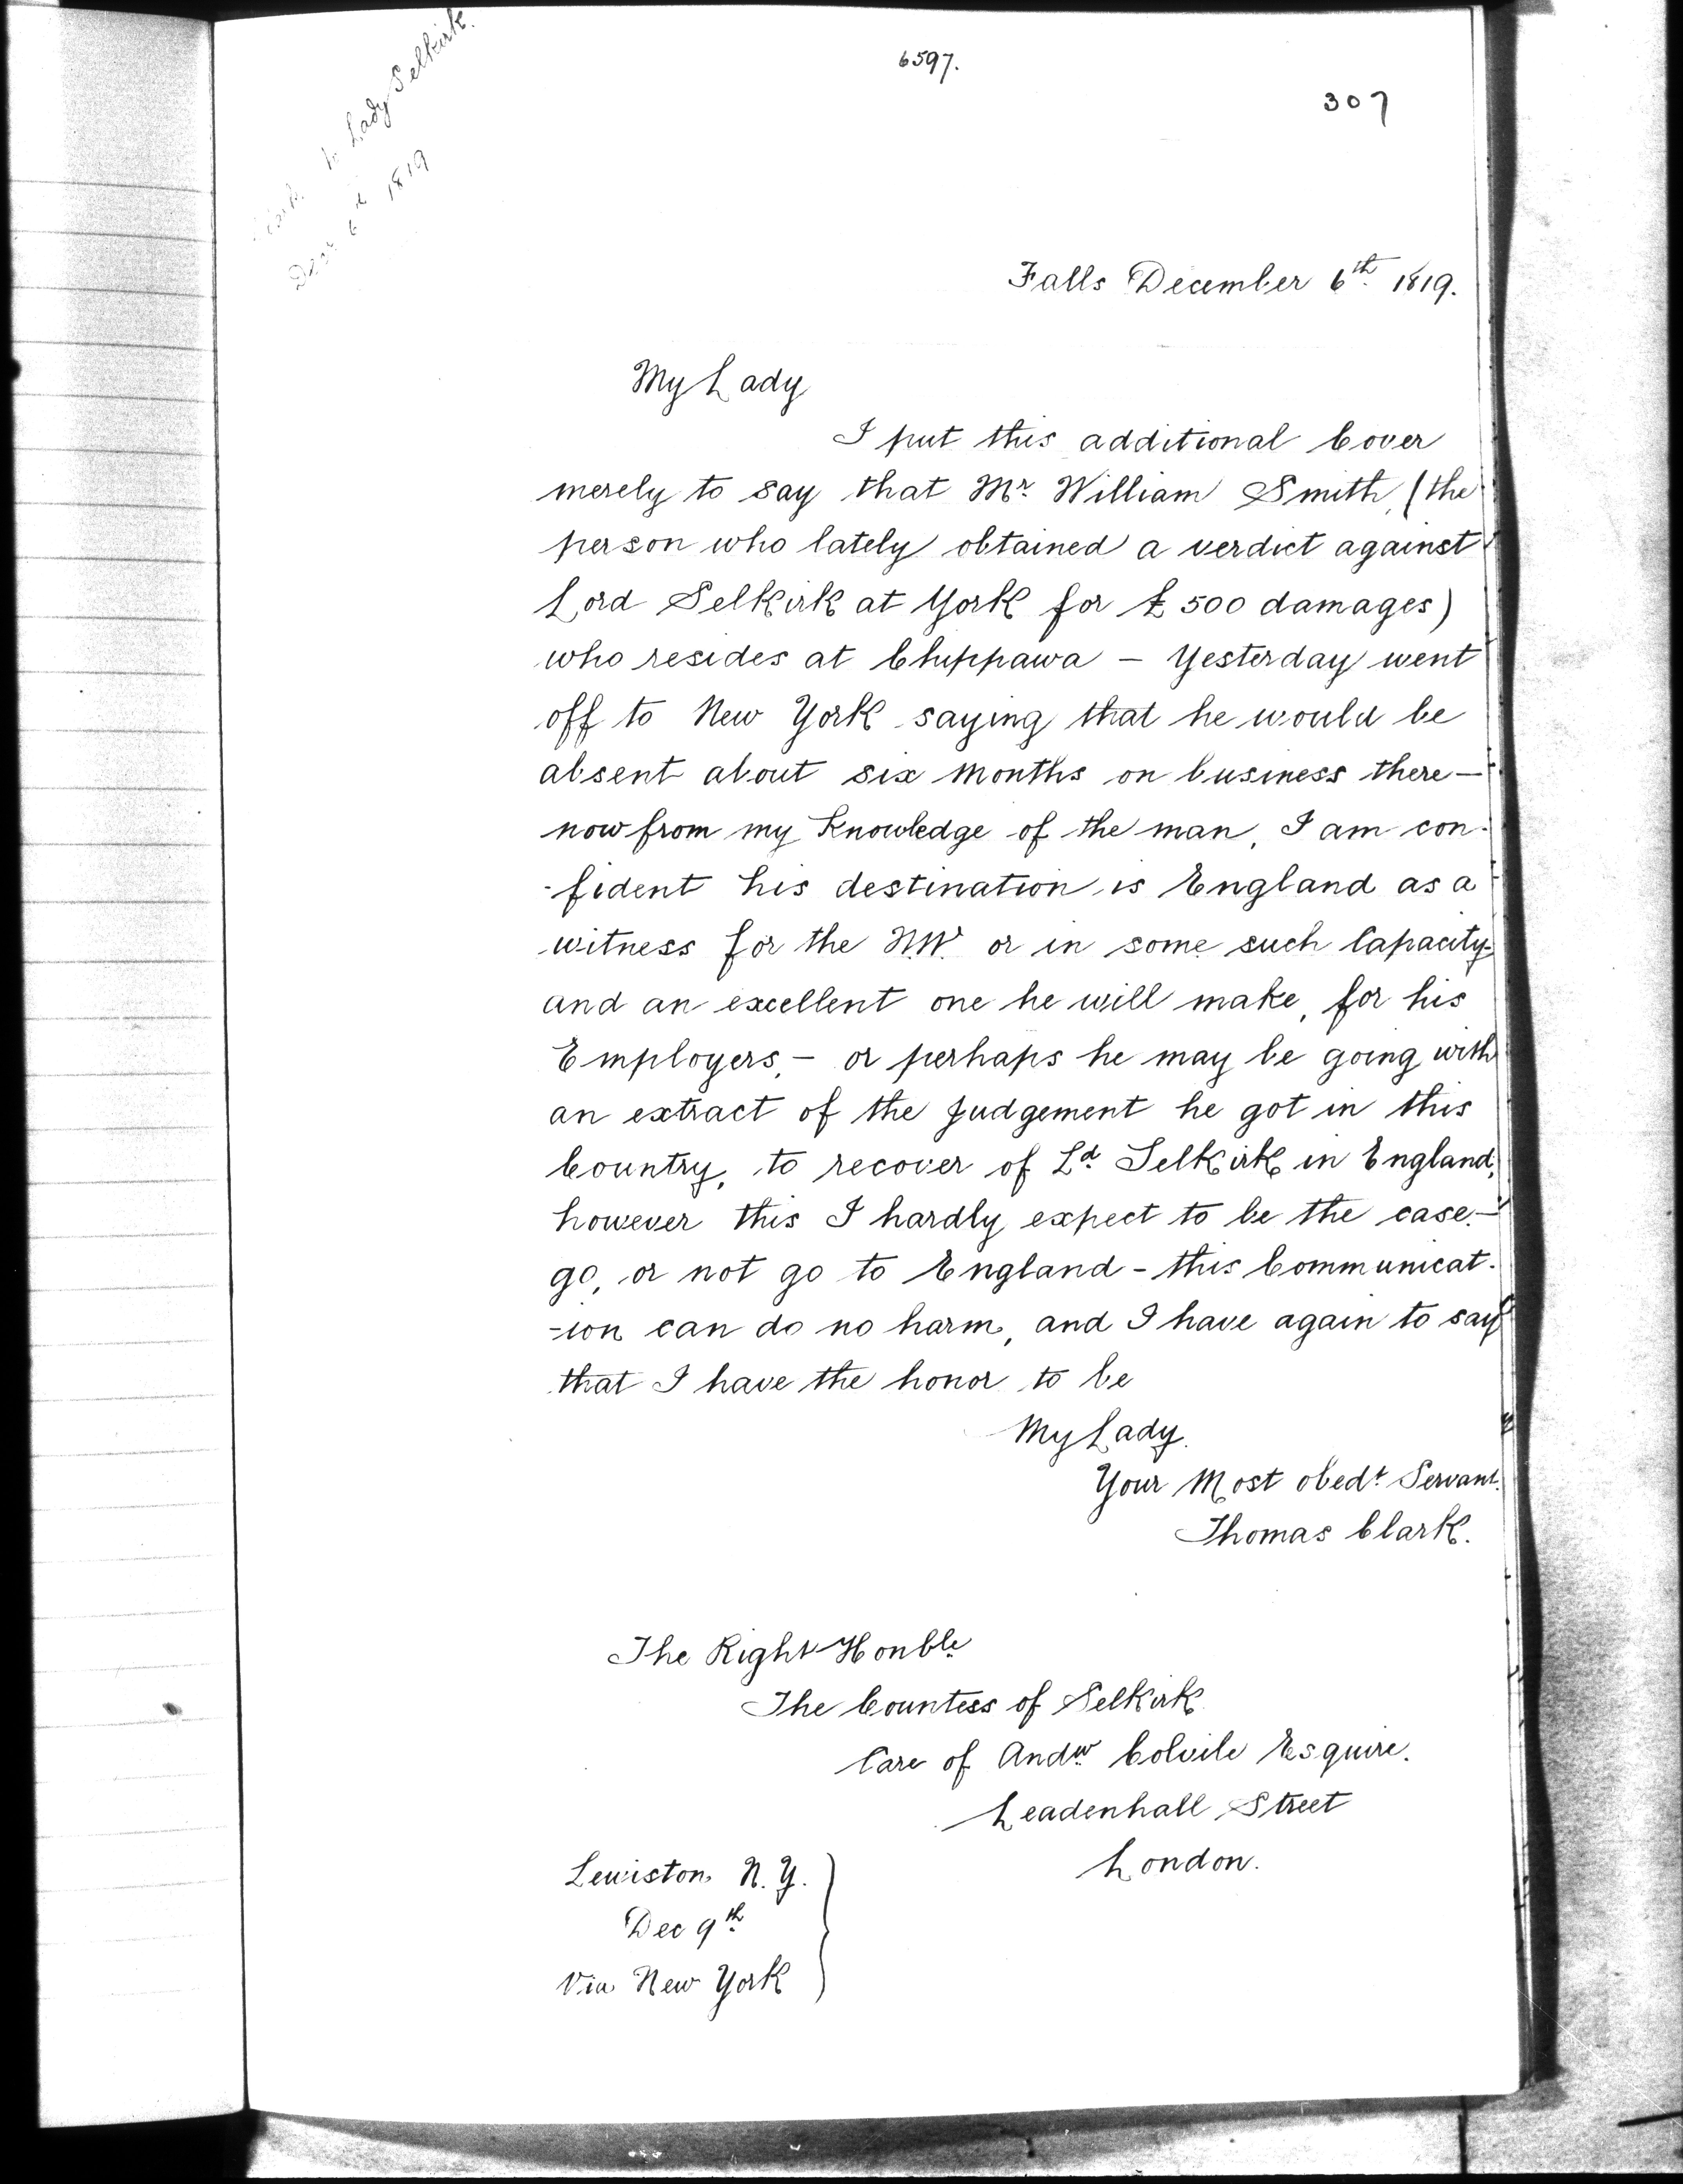 6597.
307
to Lady Selkirk.
Decr 6th 1819
Falls December 6th 1819.
My Lady
I put this additional Cover
merely to say that Mr William Smith, (the
person who lately obtained a verdict against
Lord Selkirk at York for £500 damages)
who resides at Chippawa — Yesterday went
off to New York saying that he would be
absent about six months on business there —
now from my knowledge of the man, I am con-
-fident his destination is England as a
witness for the N.W. or in some such Capacity-
and an excellent one he will make, for his
Employers, — or perhaps he may be going with
an extract of the Judgement he got in this
Country, to recover of Ld Selkirk in England,
however this I hardly expect to be the case. —
go, or not go to England - this Communicat-
-ion can do no harm, and I have again to say
that I have the honor to be
My Lady.
Your Most obedt Servant.
Thomas Clark.
The Right Honble
The Countess of Selkirk
Care of Andw Colvile Esquire.
Leadenhall Street
London.
Lewiston N.Y.
Dec 9th
Via New York